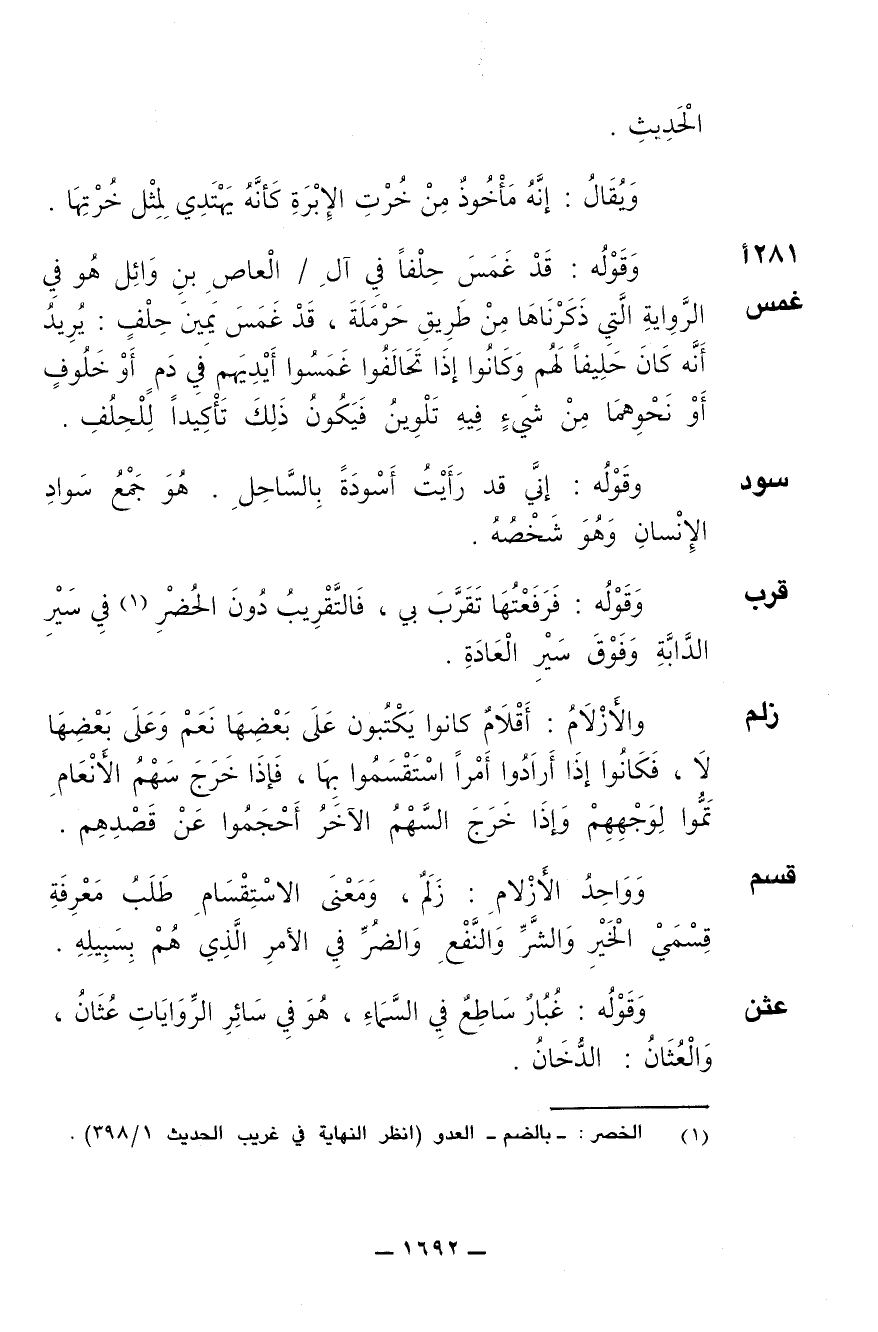 الْحَدِيثِ .
وَيُقَالُ : إِنَّهُ مَأْخُوذٌ مِنْ خُرْتِ الإِبْرَةِ كَأَنَّهُ يَهْتَدِي لِمِثْلِ خُرْتِهَا .
٢٨١أ
وَقَوْلُه : قَدْ غَمَسَ حِلْفاً فِي آلِ / الْعاصِ بنِ وَائِل هُو فِي
غمس
الرَّوايةِ الَّتِي ذَكَرْنَاهَا مِنْ طَرِيقِ حَرْمَلَةَ ، قَدْ غَمَسَ يَمِينَ حِلْفٍ : يُرِيدُ
أَنَّه كَانَ حَلِيفاً لَهُم وَكَانُوا إِذَا تَحَالَفُوا غَمَسُوا أَيْدِيَهم فِي دَمٍ أَوْ خَلُوفٍ
أَوْ نَحْوِهمَا مِنْ شَيءٍ فِيهِ تَلْوِينُ فَيَكُونُ ذَلِكَ تَأْكِيداً لِلْحِلُفِ .
سود
وقَوْلُه : إِنَّي قد رَأَيْتُ أَسْودَةً بِالسَّاحِلِ . هُوَ جَمْعُ سَوادِ
الإِنْسانِ وَهُوَ شَخْصُهُ .
قرب
وَقَوْلُه : فَرَفَعْتُهَا تَقَرَّبَ بي ، فَالتَّقْرِيبُ دُونَ الحُضْرِ (١) فِي سَيْرِ
الدَّابَّةِ وَفَوْقَ سَيْرِ الْعَادَةِ .
زلم
والأَزْلَامُ : أَقْلَامٌ كانوا يَكْتُبون عَلَى بَعْضِهَا نَعَمْ وَعَلَى بَعْضِهَا
لَا ، فَكَانُوا إِذَا أَرادُوا أَمْراً اسْتَقْسَمُوا بِهَا ، فَإِذَا خَرَجَ سَهْمُ الأَنْعَامِ
تَمُّوا لِوَجْهِهِمْ وَإِذَا خَرَجَ السَّهْمُ الآخَرُ أَحْجَمُوا عَنْ قَصْدِهِم .
قسم
وَوَاحِدُ الأَزْلامِ : زَلَمٌ ، وَمَعْنَى الاسْتِقْسَامِ طَلَبُ مَعْرِفَةِ
قِسْمَيْ الْخَيْرِ وَالشَّرِّ وَالنَّفْعِ وَالضُرِّ فِي الأمرِ الَّذِي هُمْ بِسَبِيلِهِ .
عثن
وَقَوْلُه : غُبُارٌ سَاطِعٌ فِي السَّمَاءِ ، هُوَ فِي سَائِرِ الرِّوَايَاتِ عُثَانُ ،
وَالْعُثَانُ : الدُّخَانُ .
(١) الخصر : ـ بالضم ـ العدو (انظر النهاية في غريب الحديث ٣٩٨/١) .
ـ ١٦٩٢ ـ